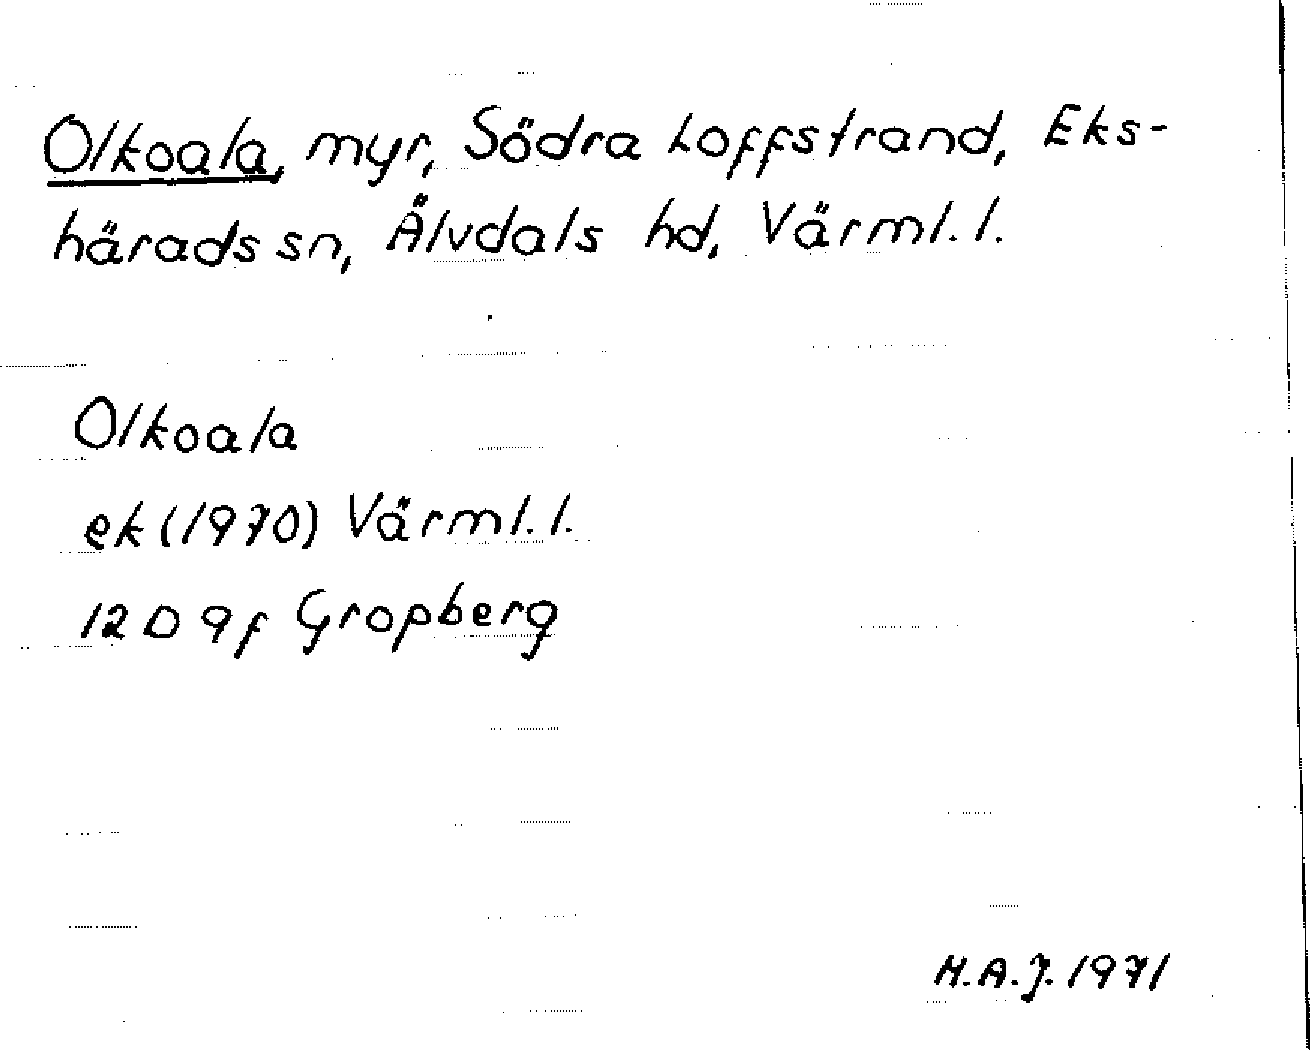 Olkoala, myr, Södra Loffstrand, Eks-
härads sn, Älvdals hd, Värml. l.
Olkoala
ek (1970) Värml. l.
12 D 9f Gropberg
M.A.J. 1971